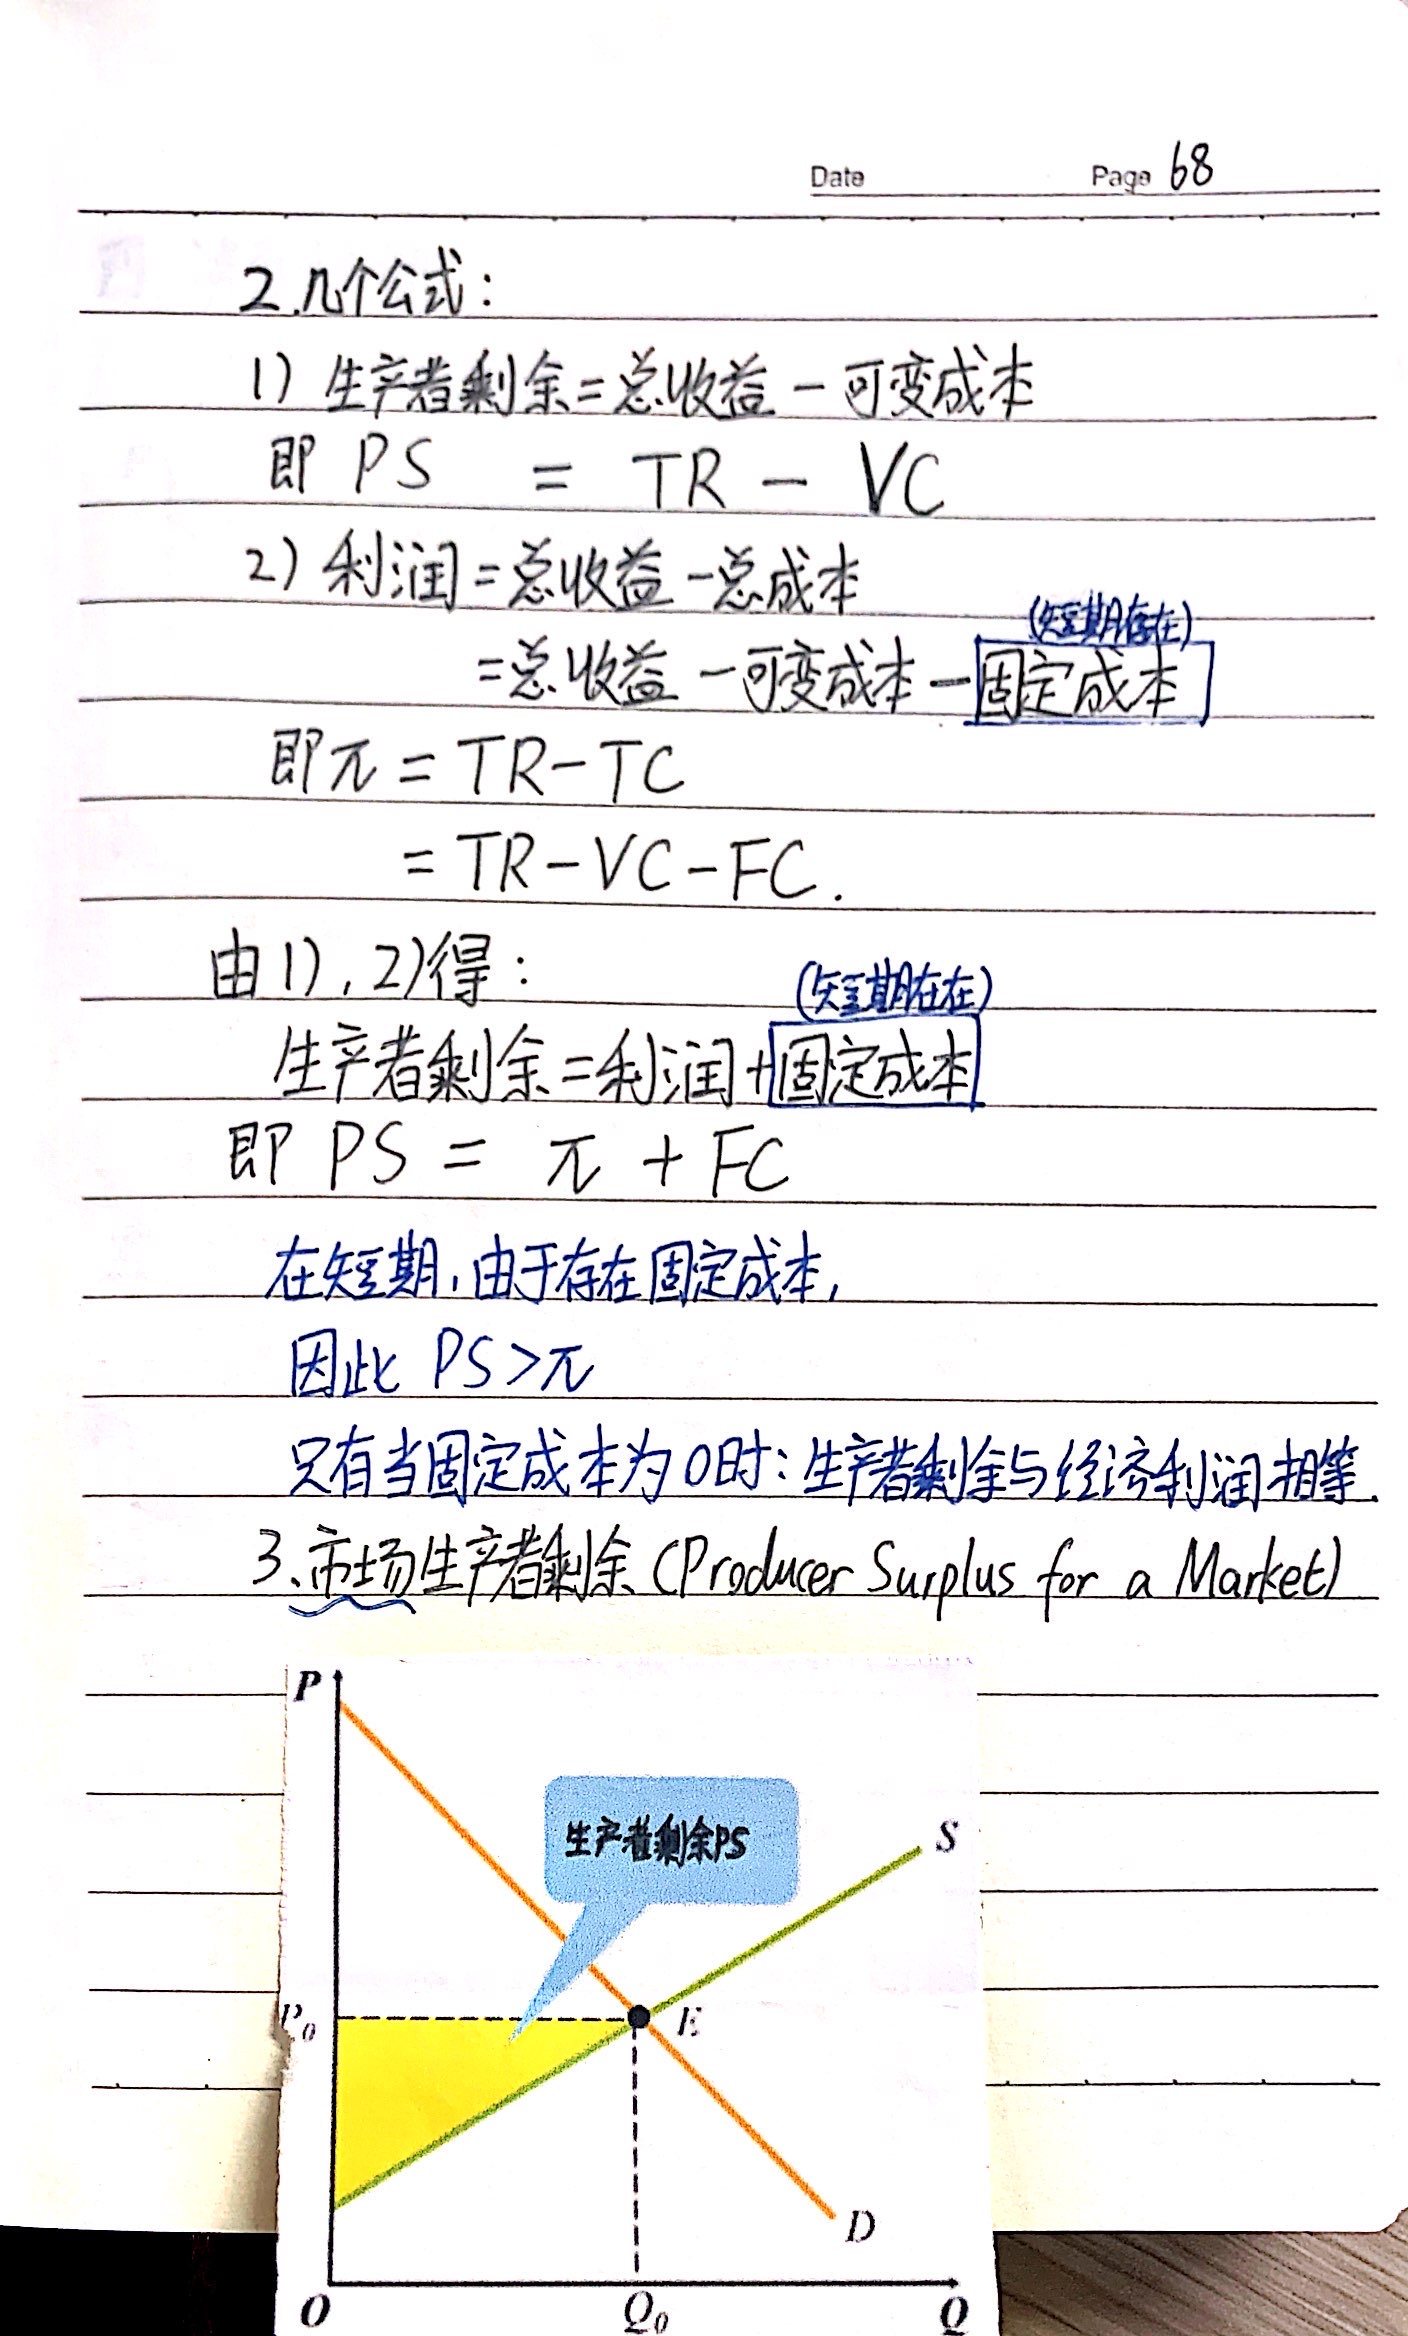 Date Page 68
2.几个公式：
1) 生产者剩余=总收益-可变成本
即 PS = TR - VC
2) 利润=总收益-总成本
(短期存在)
=总收益-可变成本-固定成本
即π=TR-TC
=TR-VC-FC.
由1), 2)得：
(短期存在)
生产者剩余=利润+固定成本
即 PS = π + FC
在短期,由于存在固定成本,
因此 PS>π
只有当固定成本为0时:生产者剩余与经济利润相等.
3、市场生产者剩余 (Producer Surplus for a Market)
P
生产者剩余PS
S
P₀
E
D
O Q₀ Q